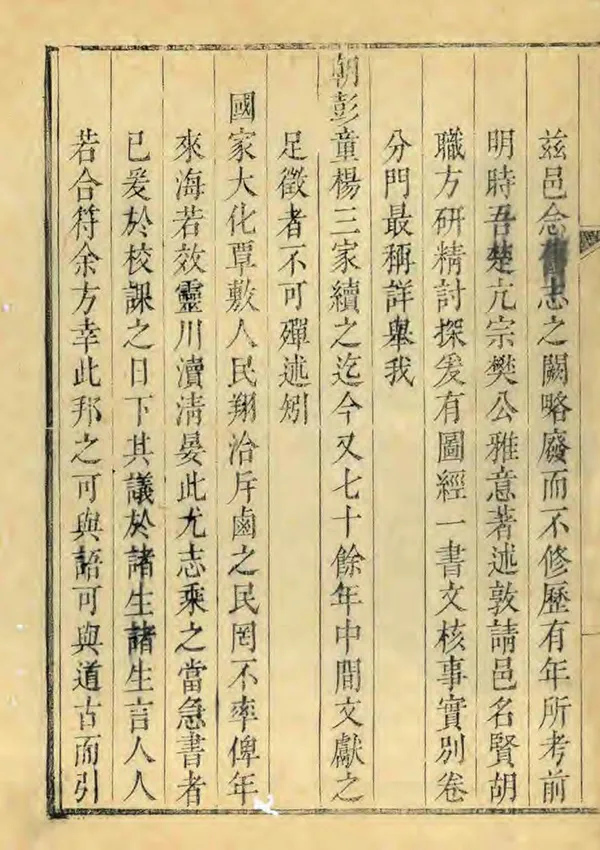 兹邑念舊志之闕略廢而不修歷有年所考前
明時吾楚亢宗樊公雅意著述敦請邑名賢胡
職方研精討探爰有圖經一書文核事實別卷
分門最稱詳舉我
朝彭童楊三家續之迄今又七十餘年中間文獻之
足徵者不可殫述矧
國家大化覃敷人民翔洽斥鹵之民罔不率俾年
來海若效靈川瀆清晏此尤志乘之當急書者
已爰於校課之日下其議於諸生諸生言人人
若合符余方幸此邦之可與語可與道古而引